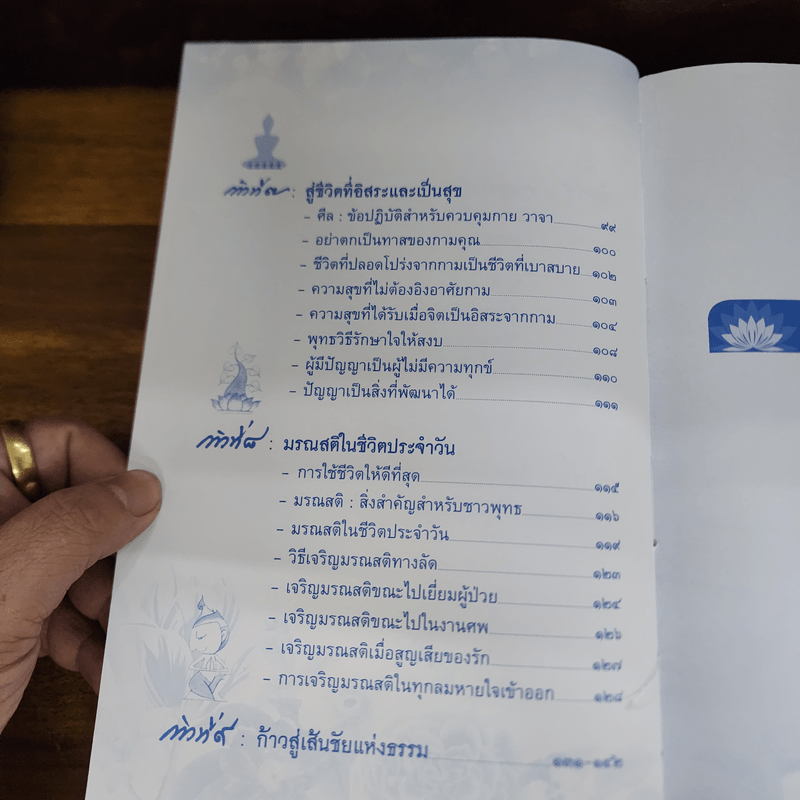 ก้าวที่ ๗ : สู่ชีวิตที่อิสระและเป็นสุข
- ศีล : ข้อปฏิบัติสำหรับควบคุมกาย วาจา ๙๙
- อย่าตกเป็นทาสของกามคุณ ๑๐๐
- ชีวิตที่ปลอดโปร่งจากกามเป็นชีวิตที่เบาสบาย ๑๐๒
- ความสุขที่ไม่ต้องอิงอาศัยกาม ๑๐๓
- ความสุขที่ได้รับเมื่อจิตเป็นอิสระจากกาม ๑๐๔
- พุทธวิธีรักษาใจให้สงบ ๑๐๘
- ผู้มีปัญญาเป็นผู้ไม่มีความทุกข์ ๑๑๐
- ปัญญาเป็นสิ่งที่พัฒนาได้ ๑๑๑
ก้าวที่ ๘ : มรณสติในชีวิตประจำวัน
- การใช้ชีวิตให้ดีที่สุด ๑๑๕
- มรณสติ : สิ่งสำคัญสำหรับชาวพุทธ ๑๑๖
- มรณสติในชีวิตประจำวัน ๑๑๙
- วิธีเจริญมรณสติทางลัด ๑๒๓
- เจริญมรณสติขณะไปเยี่ยมผู้ป่วย ๑๒๔
- เจริญมรณสติขณะไปในงานศพ ๑๒๖
- เจริญมรณสติเมื่อสูญเสียของรัก ๑๒๗
- การเจริญมรณสติในทุกลมหายใจเข้าออก ๑๒๘
ก้าวที่ ๙ : ก้าวสู่เส้นชัยแห่งธรรม ๑๓๑-๑๔๒